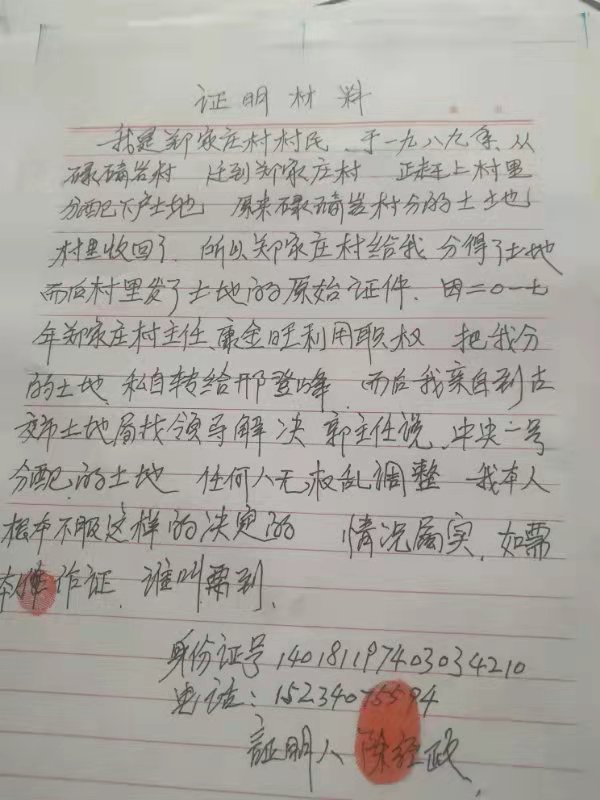 证明材料
我是郑家庄村村民、于一九八九年、从
碌碡岩村 迁到郑家庄村 正赶上村里
分配下户土地 原来碌碡岩村分的土地
村里收回了、所以郑家庄村给我分得了土地
而后村里发了土地的原始证件、因二〇一七
年郑家庄村主任、廉金旺利用职权 把我分
的土地 私自转给邢登峰、而后我亲自到古
交市土地局找领导解决 郭主任说、中央一号
分配的土地 任何人无权乱调整 我本人
根本不服这样的决定的 情况属实、如需
作证、谁叫需到、
身份证号 140181197403034210
电话:152340 94
証明人 陈经政